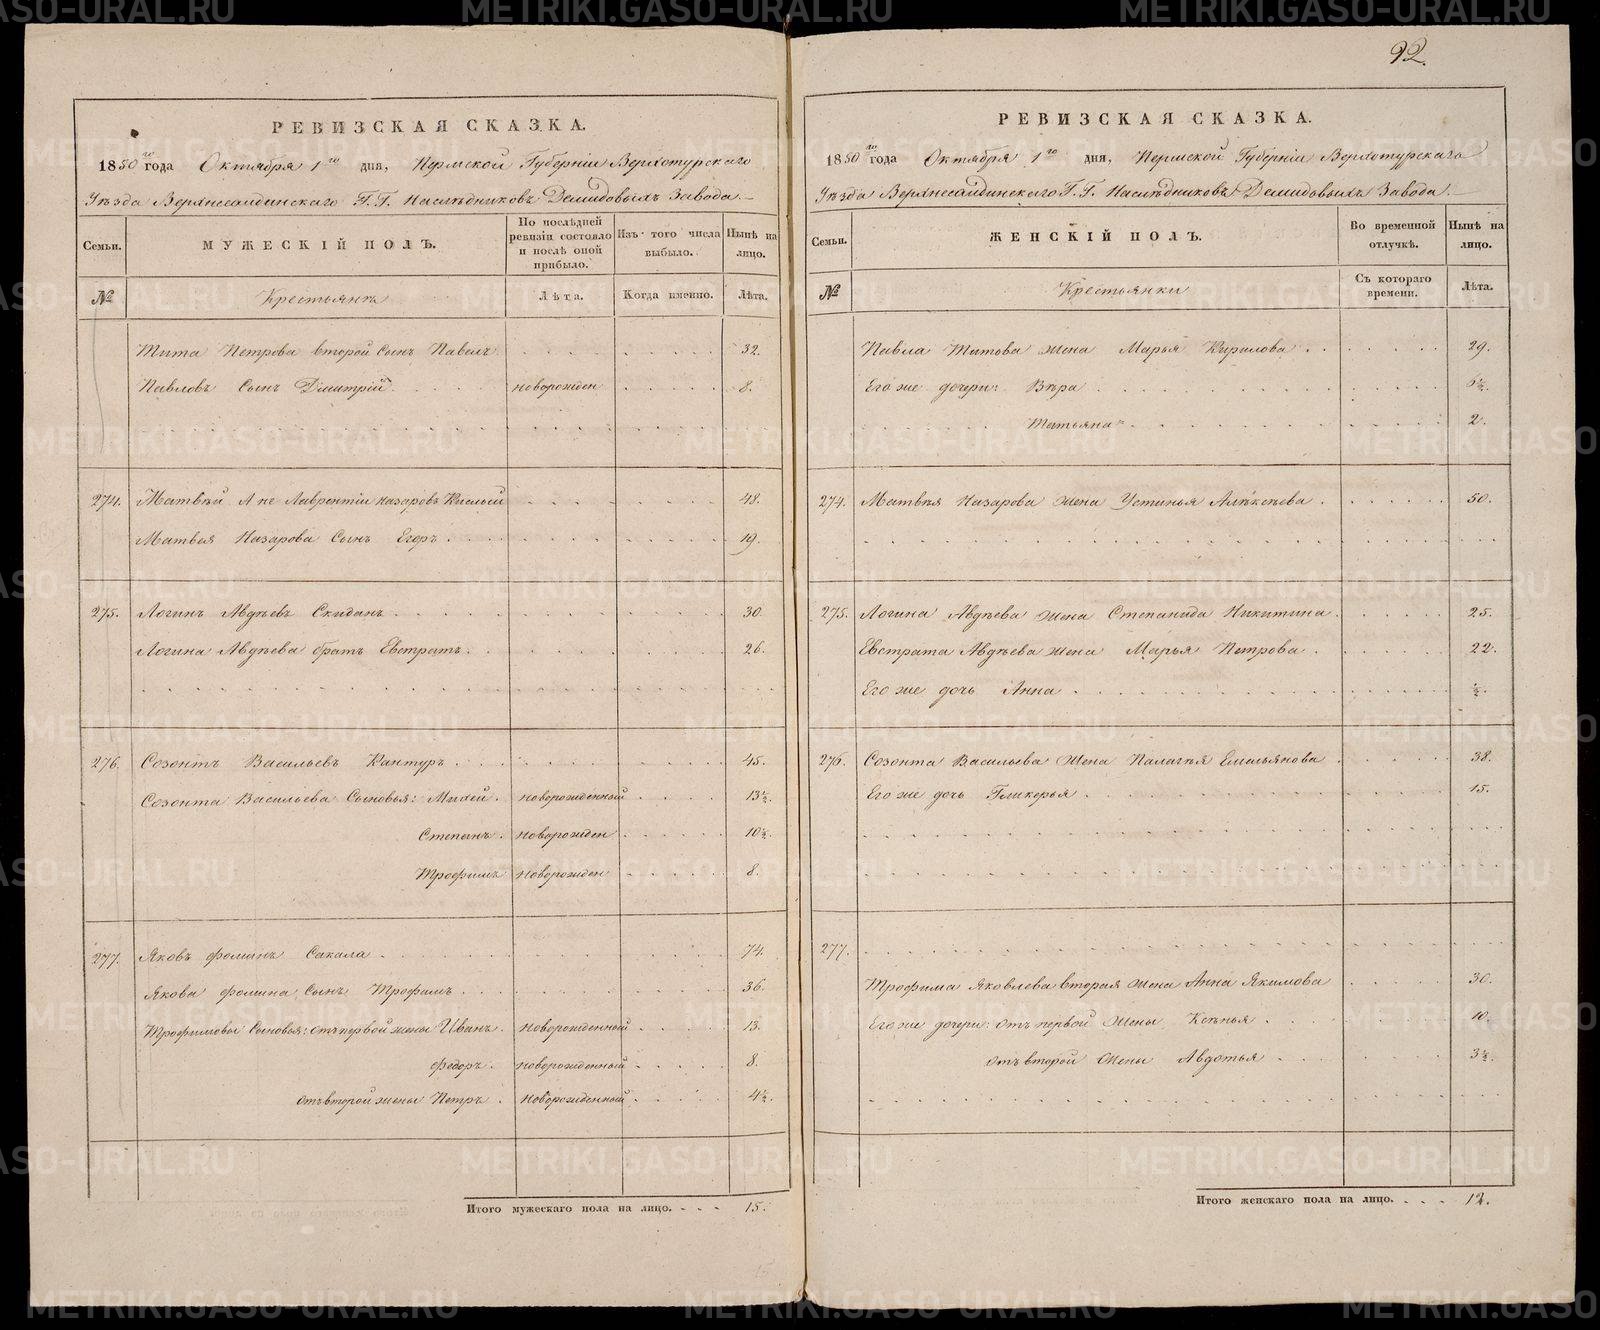 92.
РЕВИЗСКАЯ СКАЗКА.
1850го года Октября 1го дня, Пермской Губерніи Верхотурскаго
Уѣзда Верхнесалдинскаго Г.Г. Наслѣдниковъ Демидовыхъ Завода.
Семьи.
МУЖЕСКІЙ ПОЛЪ.
По послѣдней ревизіи состояло и послѣ оной прибыло.
Изъ того числа выбыло.
Нынѣ на лицо.
№
Крестьянъ
Лѣта.
Когда именно.
Лѣта.
Тита Петрова второй сынъ Павелъ 32.
Павловъ Сынъ Дмитрій новорожден 8.
274. Матвѣй А не Лаврентій Назаровъ Кислый 48.
Матвея Назарова Сынъ Егоръ 19.
275. Логинъ Авдѣевъ Скиданъ 30.
Логина Авдѣева братъ Евстратъ 26.
276. Созонтъ Васильевъ Кантуръ 45.
Созонта Васильева Сыновья: Михей новорожденный 13½.
Степанъ новорожден 10½.
Трофимъ новорожден 8.
277. Яковъ Фоминъ Сакала 74.
Якова Фомина Сынъ Трофимъ 36.
Трофимовы Сыновья: отъ первой жены Иванъ новорожденный 13.
Федоръ новорожденный 8.
отъ второй жены Петръ новорожденный 4½.
Итого мужескаго пола на лицо. 15.
РЕВИЗСКАЯ СКАЗКА.
1850го года Октября 1го дня, Пермской Губерніи Верхотурскаго
Уѣзда Верхнесалдинскаго Г.Г. Наслѣдниковъ Демидовыхъ Завода.
Семьи.
ЖЕНСКІЙ ПОЛЪ.
Во временной отлучкѣ.
Нынѣ на лицо.
№
Крестьянки
Съ котораго времени.
Лѣта.
Павла Титова жена Марья Кирилова 29.
Его же дочери: Вѣра 6½.
Татьяна 2.
274. Матвѣя Назарова жена Устинья Алѣксѣева 50.
275. Логина Авдѣева жена Степанида Никитина 25.
Евстрата Авдѣева жена Марья Петрова 22.
Его же дочь Анна ½.
276. Созонта Васильева жена Палагѣя Емельянова 38.
Его же дочь Гликерья 15.
277.
Трофима Яковлева вторая жена Анна Якимова 30.
Его же дочери: отъ первой жены Ксѣнья 10.
отъ второй жены Авдотья 3½.
Итого женскаго пола на лицо. 12.
METRIKI.GASO-URAL.RU